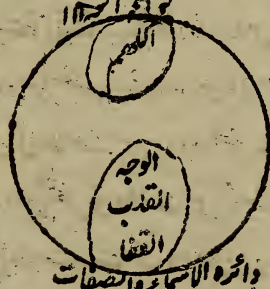 اللهم
الوجه
القلب
القفا
دائرة الاسماء والصفات